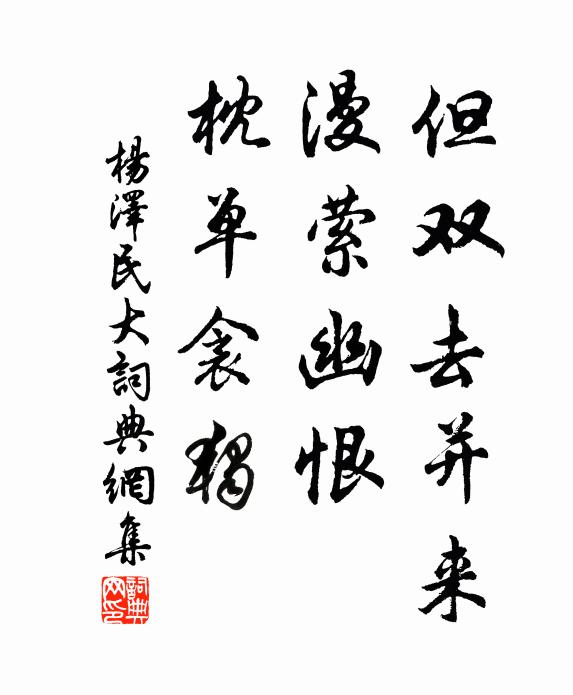 但双去并来
漫萦幽恨
枕单衾独
楊澤民大詞典網集
詞典網印